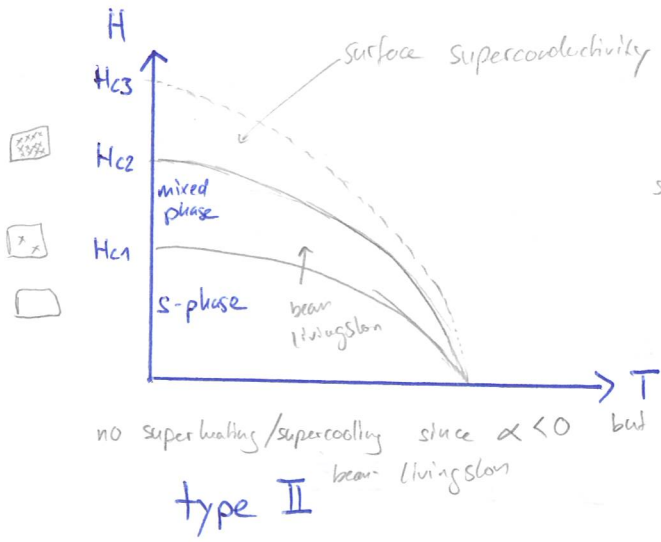 H
surface superconductivity
Hc3
Hc2
mixed
phase
Hc1
s-phase
bean
livingston
T
no superheating/supercooling since α<0 but
bean livingston
type II